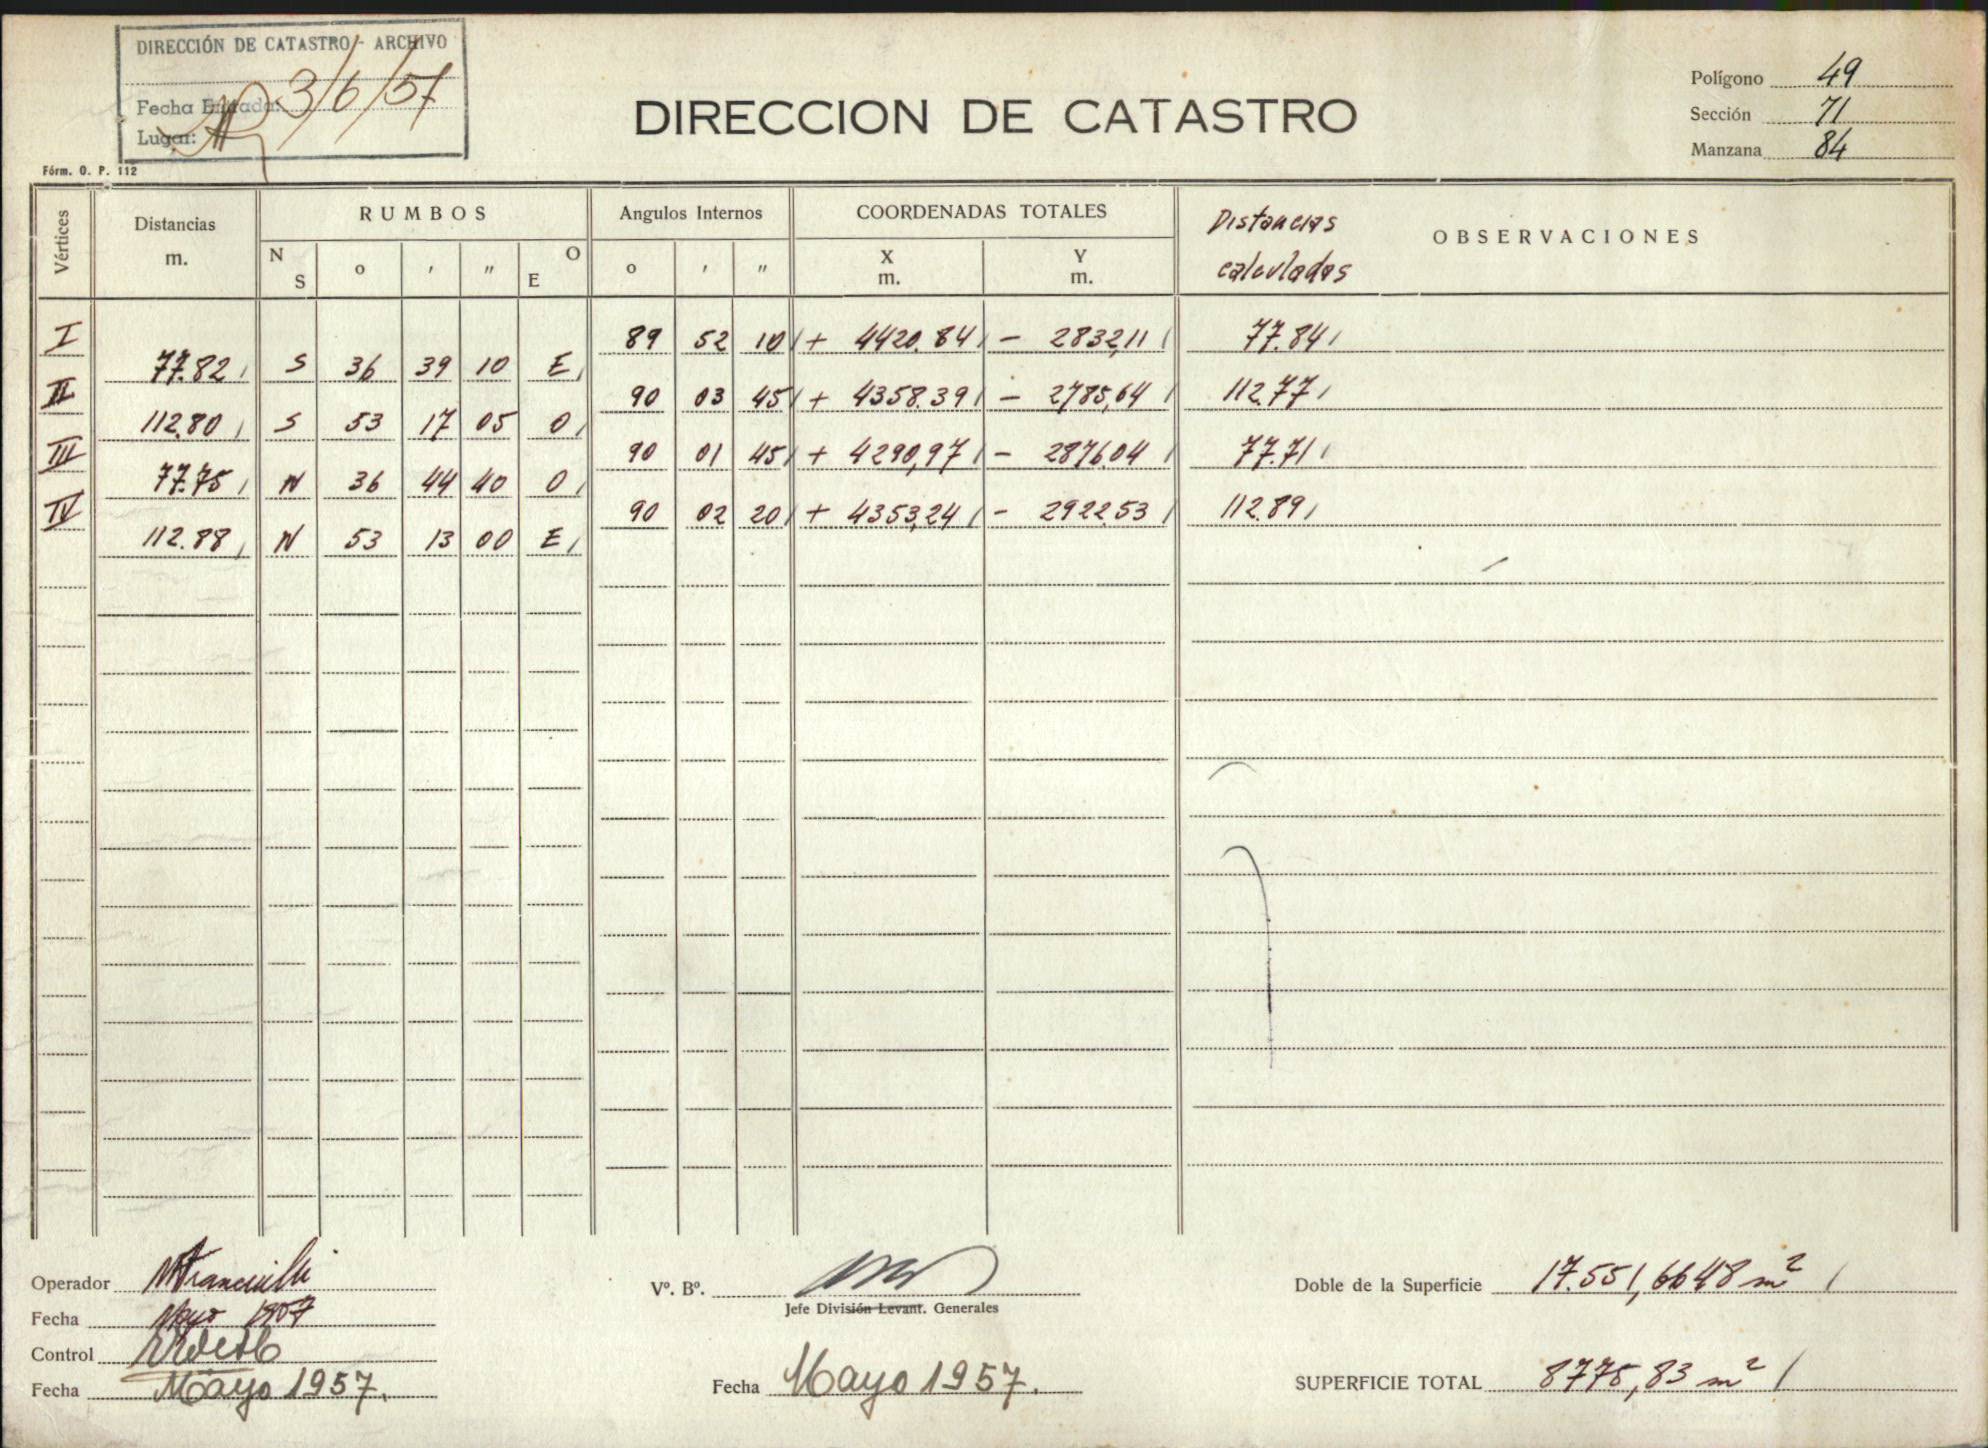 DIRECCIÓN DE CATASTRO - ARCHIVO
Fecha Entrada: 3/6/57
Lugar:
Fórm. O. P. 112
DIRECCION DE CATASTRO
Polígono 49
Sección 71
Manzana 84
Vértices Distancias m. RUMBOS Angulos Internos COORDENADAS TOTALES Distancias calculadas OBSERVACIONES
N S o ' " O E o ' " X m. Y m.
I 89 52 10 + 4420.84 - 2832,11 77.84
77.82 S 36 39 10 E
II 90 03 45 + 4358.39 - 2785,64 112.77
112.80 S 53 17 05 O
III 90 01 45 + 4290,97 - 2876.04 77.71
77.75 N 36 44 40 O
IV 90 02 20 + 4353,24 - 2922.53 112.89
112.88 N 53 13 00 E
Operador
Fecha Mayo 1957
Control
Fecha Mayo 1957.
Vº. Bº.
Jefe División Levant. Generales
Fecha Mayo 1957.
Doble de la Superficie 17.551,6648 m²
SUPERFICIE TOTAL 8775,83 m²